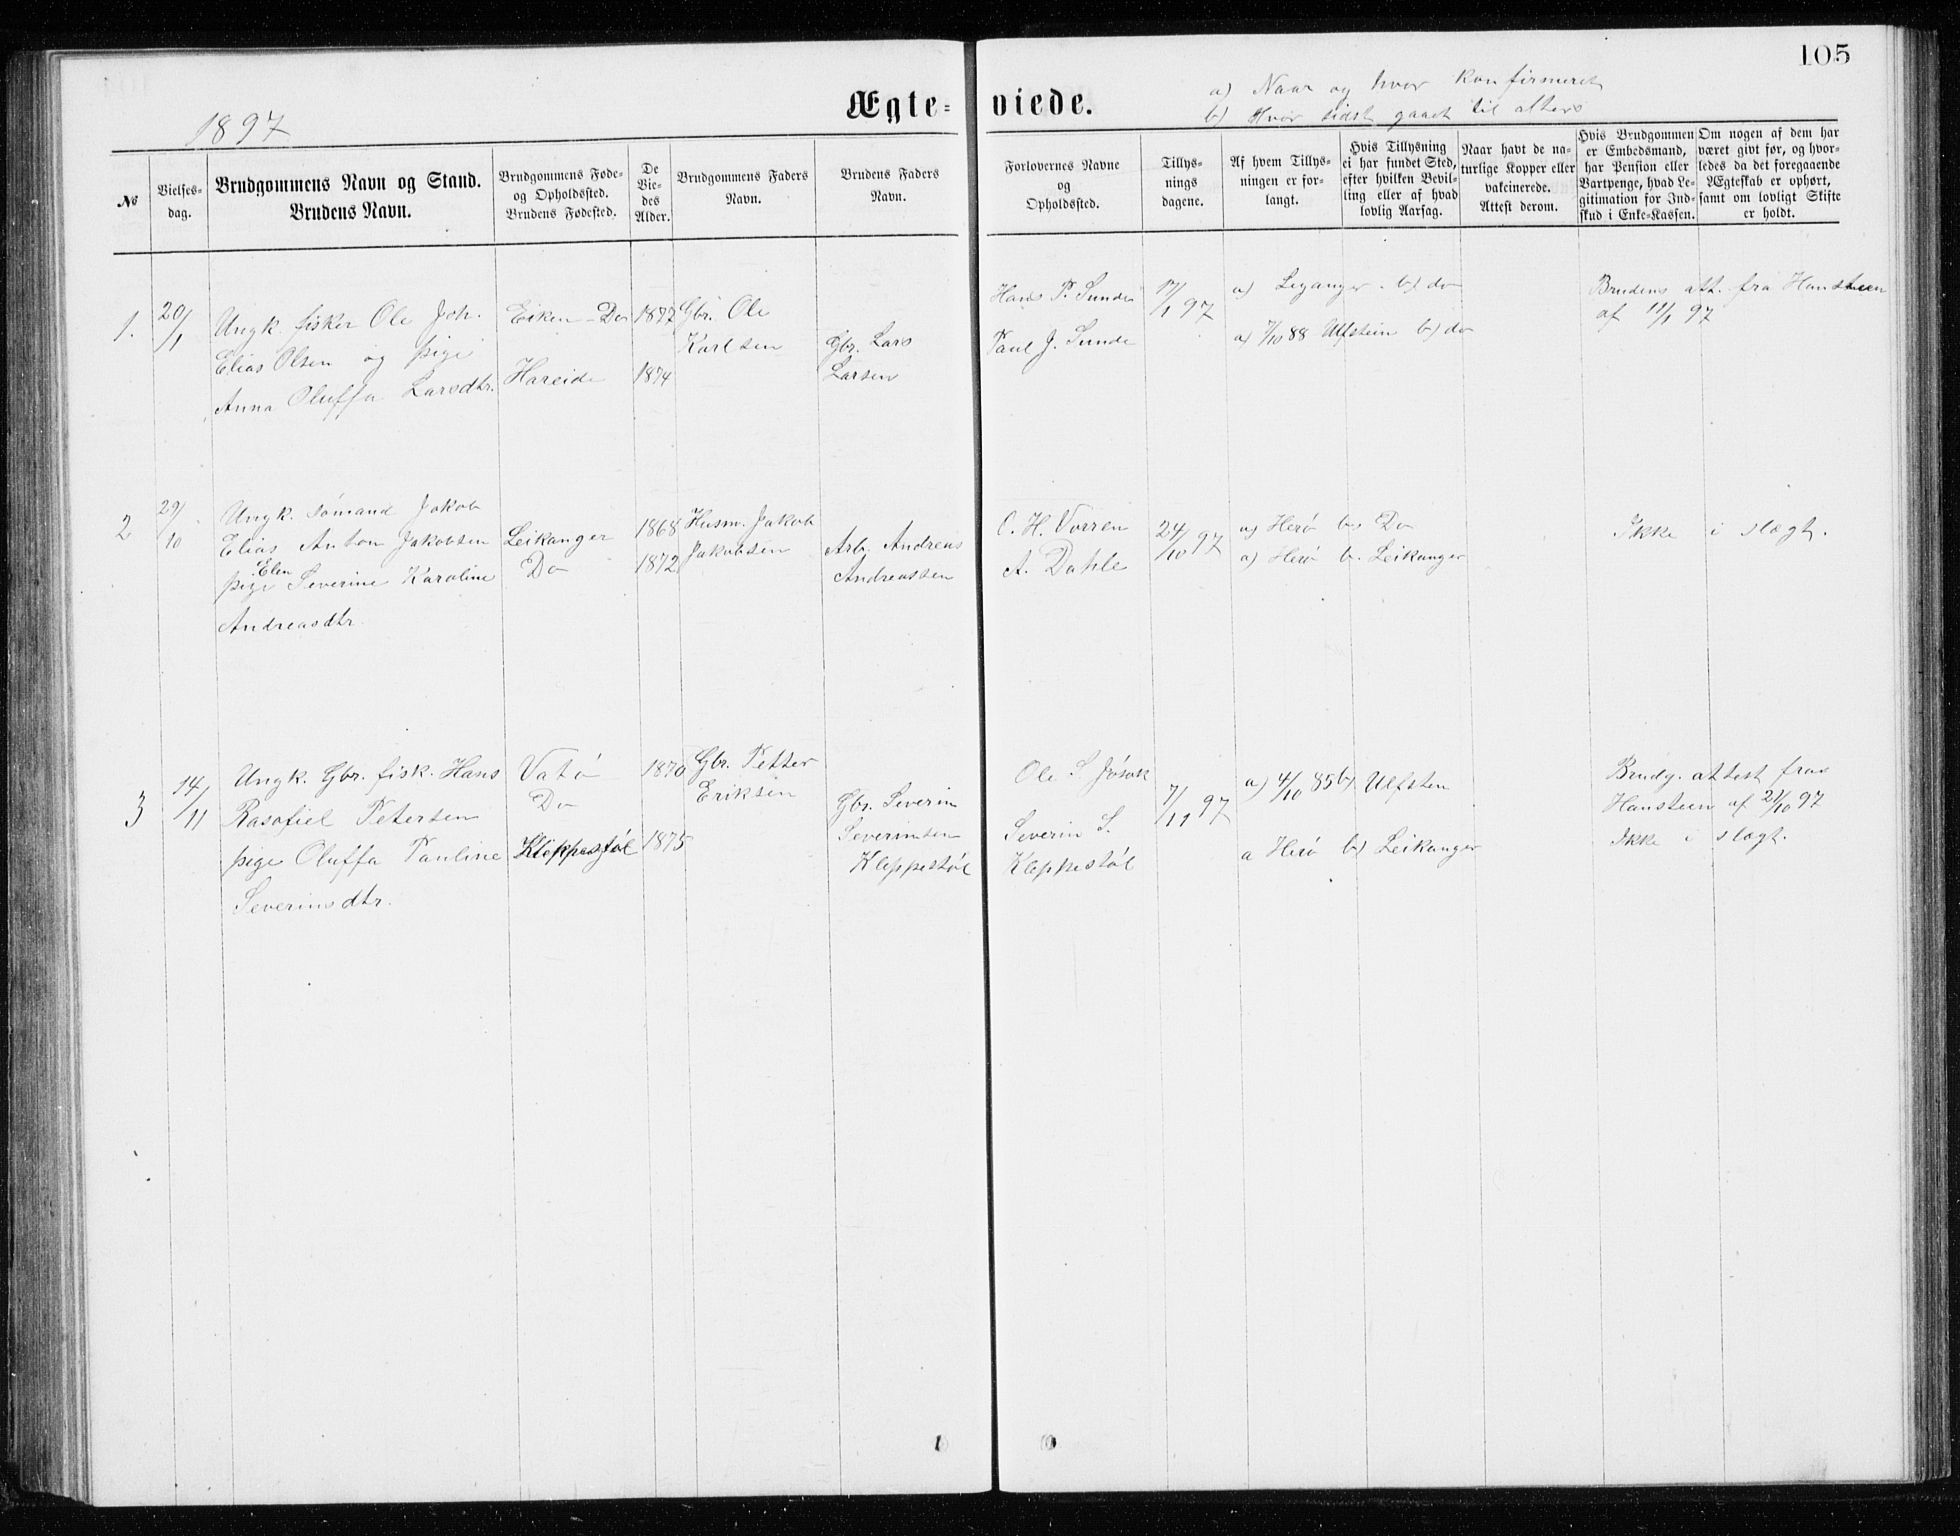 105
Ægte-
viede.
a) Naar og hvor konfirmeret
b) Hvor sidst gaaet til alters
1897
№
Vielses-
dag.
Brudgommens Navn og Stand.
Brudens Navn.
Brudgommens Føde-
og Opholdssted.
Brudens Fødested.
De
Vie-
des
Alder.
Brudgommens Faders
Navn.
Brudens Faders
Navn.
Forlovernes Navne
og
Opholdssted.
Tillys-
nings
dagene.
Af hvem Tillys-
ningen er for-
langt.
Hvis Tillysning
ei har fundet Sted,
efter hvilken Bevil-
ling eller af hvad
lovlig Aarsag.
Naar havt de na-
turlige Kopper eller
vakcinerede.
Attest derom.
Hvis Brudgommen
er Embedsmand,
har Pension eller
Vartpenge, hvad Le-
gitimation for Ind-
skud i Enke-Kassen.
Om nogen af dem har
været givt før, og hvor-
ledes da det foregaaende
Ægteskab er ophørt,
samt om lovligt Skifte
er holdt.
1.
20/1
Ungk. fisker Ole Joh.
Elias Olsen og pige
Anna Oluffa Larsdtr.
Eiken - Do
Hareide
1872
1874
Gbr. Ole
Karlsen
Gbr. Lars
Larsen
Hans P. Sunde
Paul J. Sunde
17/1 97
a) Leganger - b) do
a) 7/10 88 Ulfstein b) do
Brudens att. fra Hansteen
af 11/1 97
2
29/10
Ungk. sømand Jakob
Elias Anton Jakobsen
Elen
pige Severine Karoline
Andreasdtr.
Leikanger
Do
1868
1872
Husm. Jakob
Jakobsen
Arb. Andreas
Andreassen
O. H. Vorren
A. Dahle
24/10 97
a) Herø b) Do
a) Herø b. Leikanger
Ikke i slægt.
3
14/11
Ungk. Gbr. fisk. Hans
Rasofiel Petersen
pige Oluffa Pauline
Severinsdtr.
Vatø
Do
Kleppestøl
1870
1875
Gbr. Petter
Eriksen
Gbr. Severin
Severinsen
Kleppestøl
Ole S. Jøsok
Severin S.
Kleppestøl
7/11 97
a) 4/10 85 b) Ulfsten
a Herø b) Leikanger
Brudg. attest fra
Hansteen af 21/10 97
Ikke i slægt.